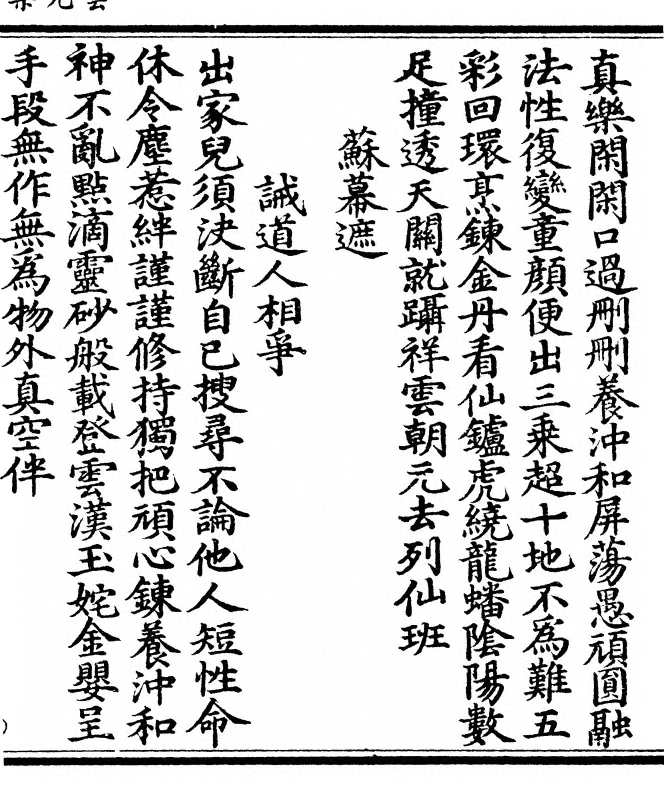 真樂閑閑口過刪刪養沖和屏蕩愚頑圓融
法性復變童顔便出三乗超十地不爲難五
彩回環烹鍊金丹看仙鑪虎繞龍蟠陰陽數
足撞透天關就躡祥雲朝元去列仙班
蘇幕遮
誡道人相爭
出家兒須決斷自已搜尋不論他人短性命
休令塵惹絆謹謹修持獨把頑心鍊養沖和
神不亂點滴靈砂般載登雲漢玉姹金嬰呈
手段無作無爲物外真空伴